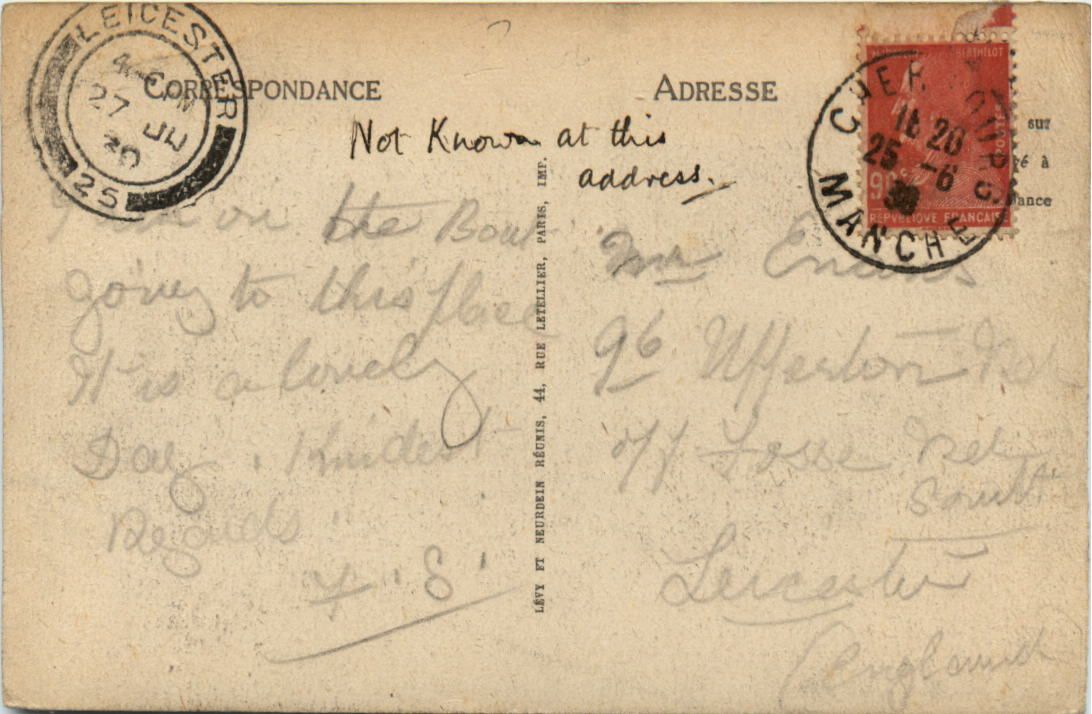 LEICESTER
27 JU
30
25
CORRESPONDANCE
ADRESSE
Not Known at this
address.
CHERBOURG
MANCHE
16 20
25 -6
30
BERTHELOT
90c
RÉPUBLIQUE FRANÇAISE
sur
é à
ance
on the Boat
going to this place
It is a lovely
Day. Kindest
Regards
LÉVY ET NEURDEIN RÉUNIS, 44, RUE LETELLIER, PARIS, IMP.
Mr
96 Ufferton Rd
off Fosse Rd
South
Leicester
(England